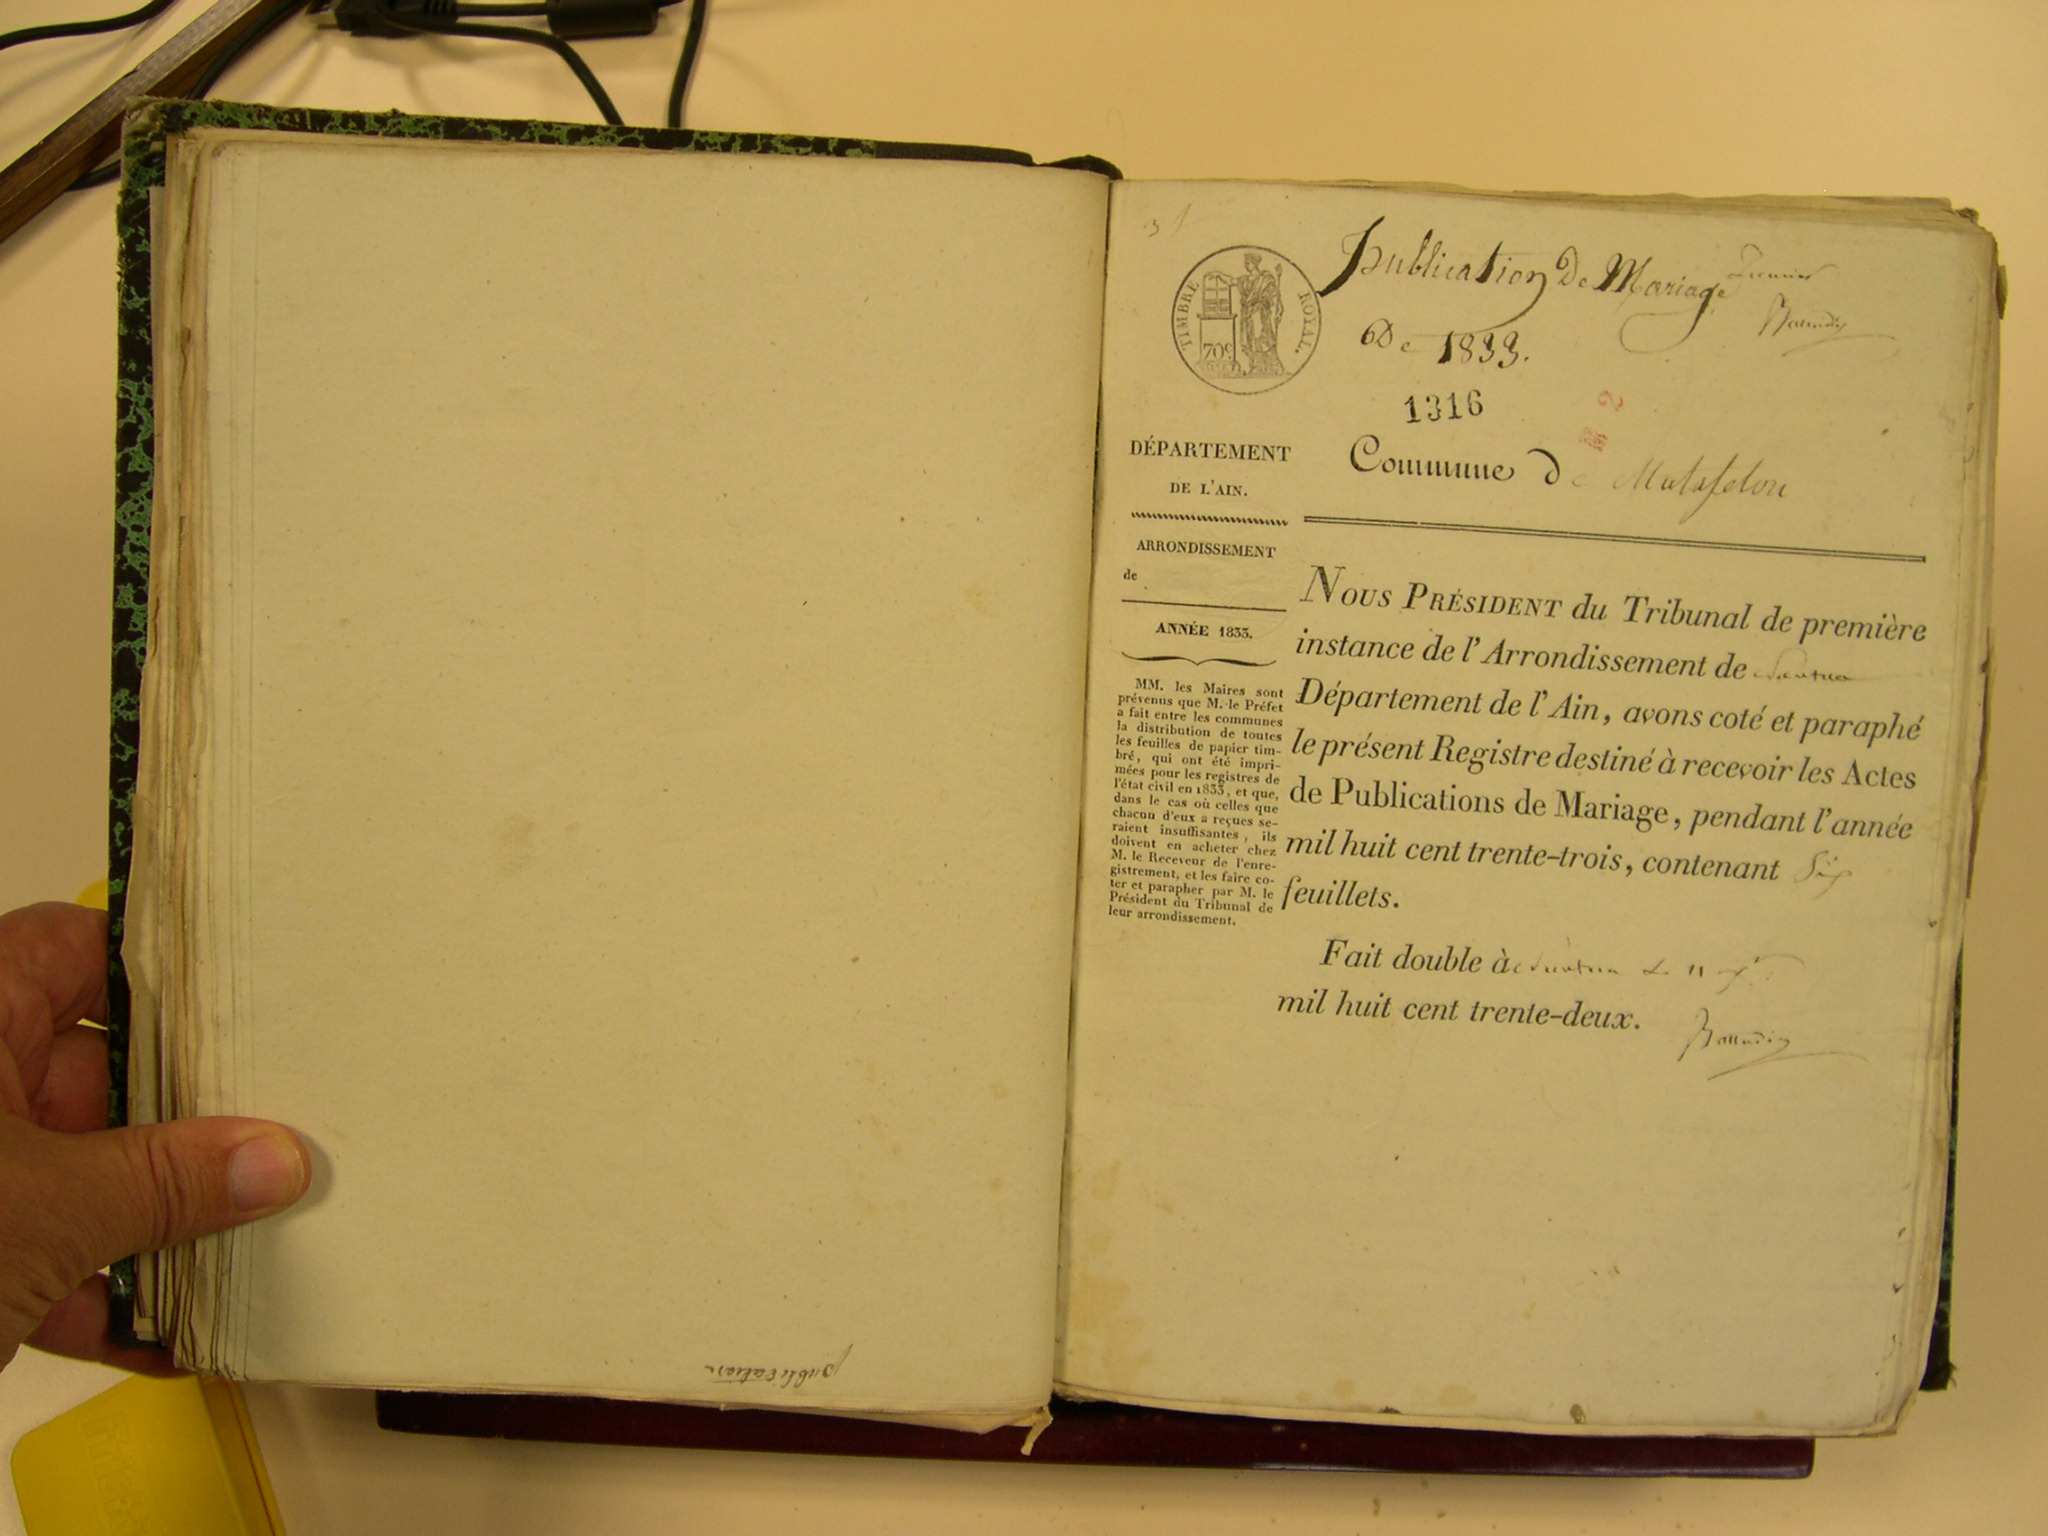 publication
31
TIMBRE ROYAL.
70c
Publication De Mariage
Premier
De 1833.
1316
Commune De Matafelon
DÉPARTEMENT
DE L'AIN.
ARRONDISSEMENT
de
ANNÉE 1833.
MM. les Maires sont
prévenus que M. le Préfet
a fait entre les communes
la distribution de toutes
les feuilles de papier tim-
bré, qui ont été impri-
mées pour les registres de
l'état civil en 1833, et que,
dans le cas où celles que
chacun d'eux a reçues se-
raient insuffisantes, ils
doivent en acheter chez
M. le Receveur de l'enre-
gistrement, et les faire co-
ter et parapher par M. le
Président du Tribunal de
leur arrondissement.
NOUS PRÉSIDENT du Tribunal de première
instance de l'Arrondissement de Nantua
Département de l'Ain, avons coté et paraphé
le présent Registre destiné à recevoir les Actes
de Publications de Mariage, pendant l'année
mil huit cent trente-trois, contenant Six
feuillets.
Fait double à Nantua Le 11
mil huit cent trente-deux.